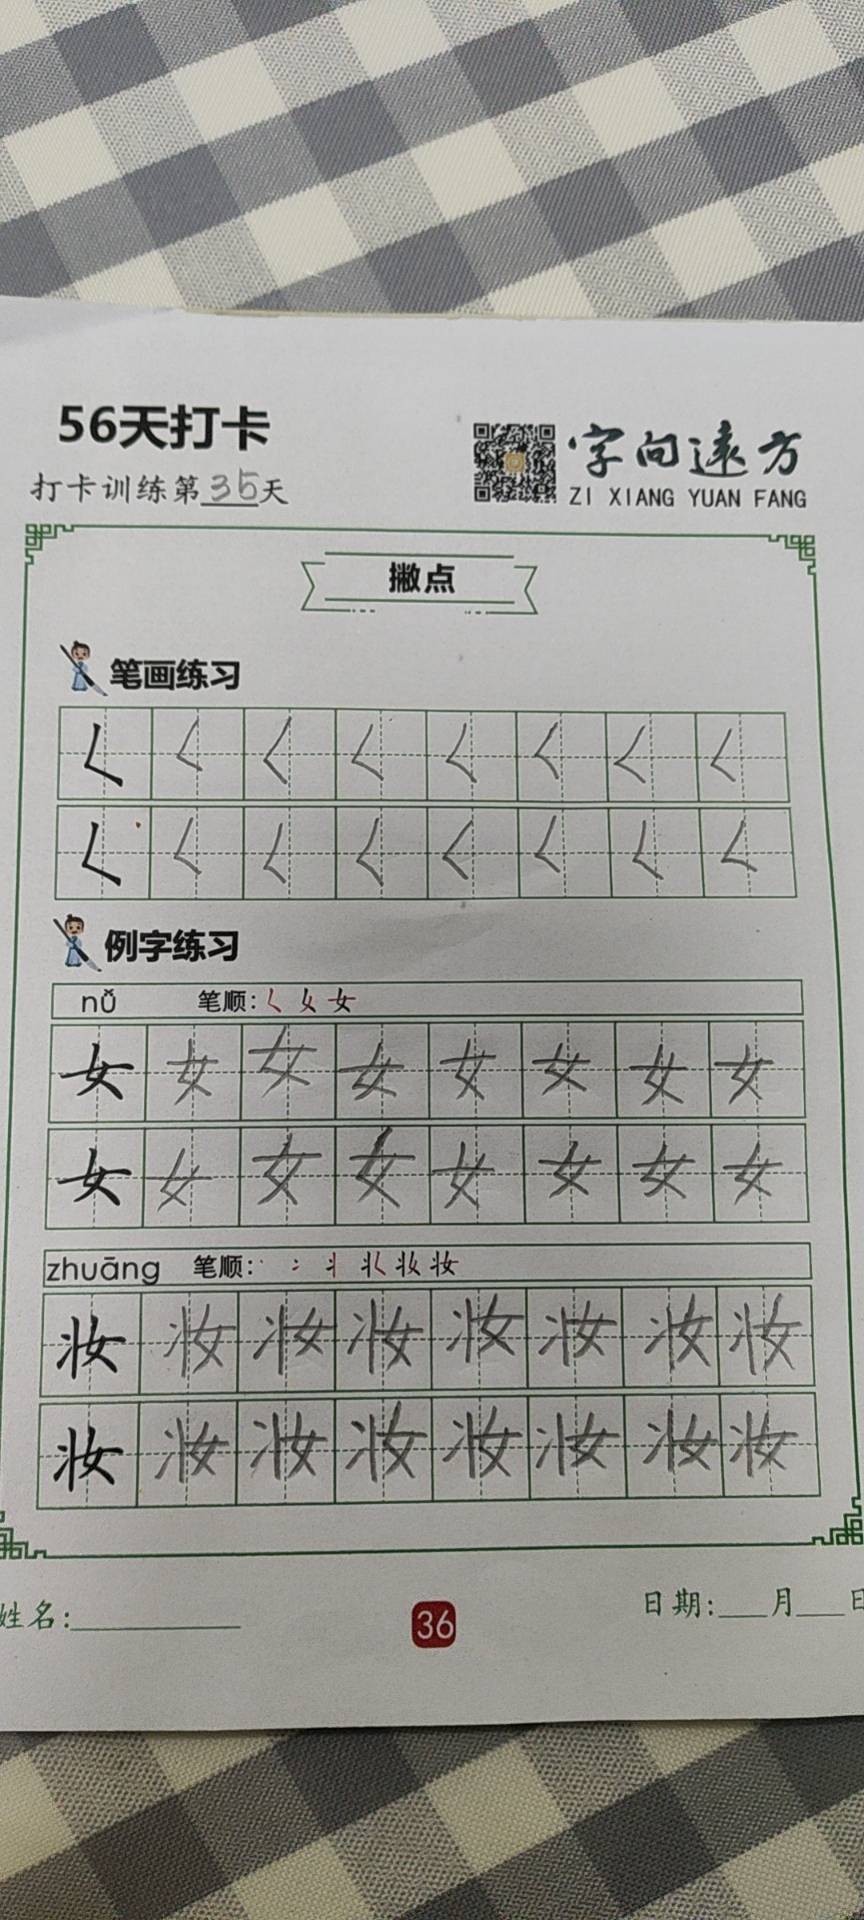 56天打卡
打卡训练第35天
字向远方
ZI XIANG YUAN FANG
撇点
笔画练习
𡿨 𡿨 𡿨 𡿨 𡿨 𡿨 𡿨 𡿨
𡿨 𡿨 𡿨 𡿨 𡿨 𡿨 𡿨 𡿨
例字练习
nǚ 笔顺: 𡿨 女 女
女 女 女 女 女 女 女 女
女 女 女 女 女 女 女 女
zhuāng 笔顺: 妆
妆 妆 妆 妆 妆 妆 妆 妆
妆 妆 妆 妆 妆 妆 妆 妆
姓名:
36
日期: 月 日